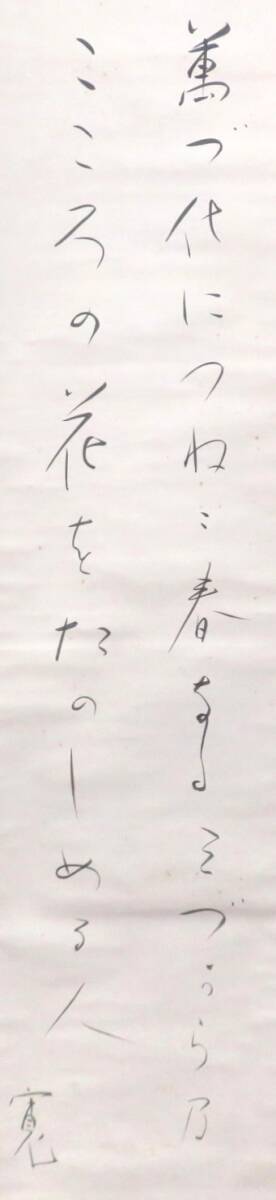 萬づ代につねに春なるみづからの
こころの花をたのしめる人
寛